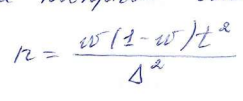 n = \frac{w(1-w)t^2}{\Delta^2}